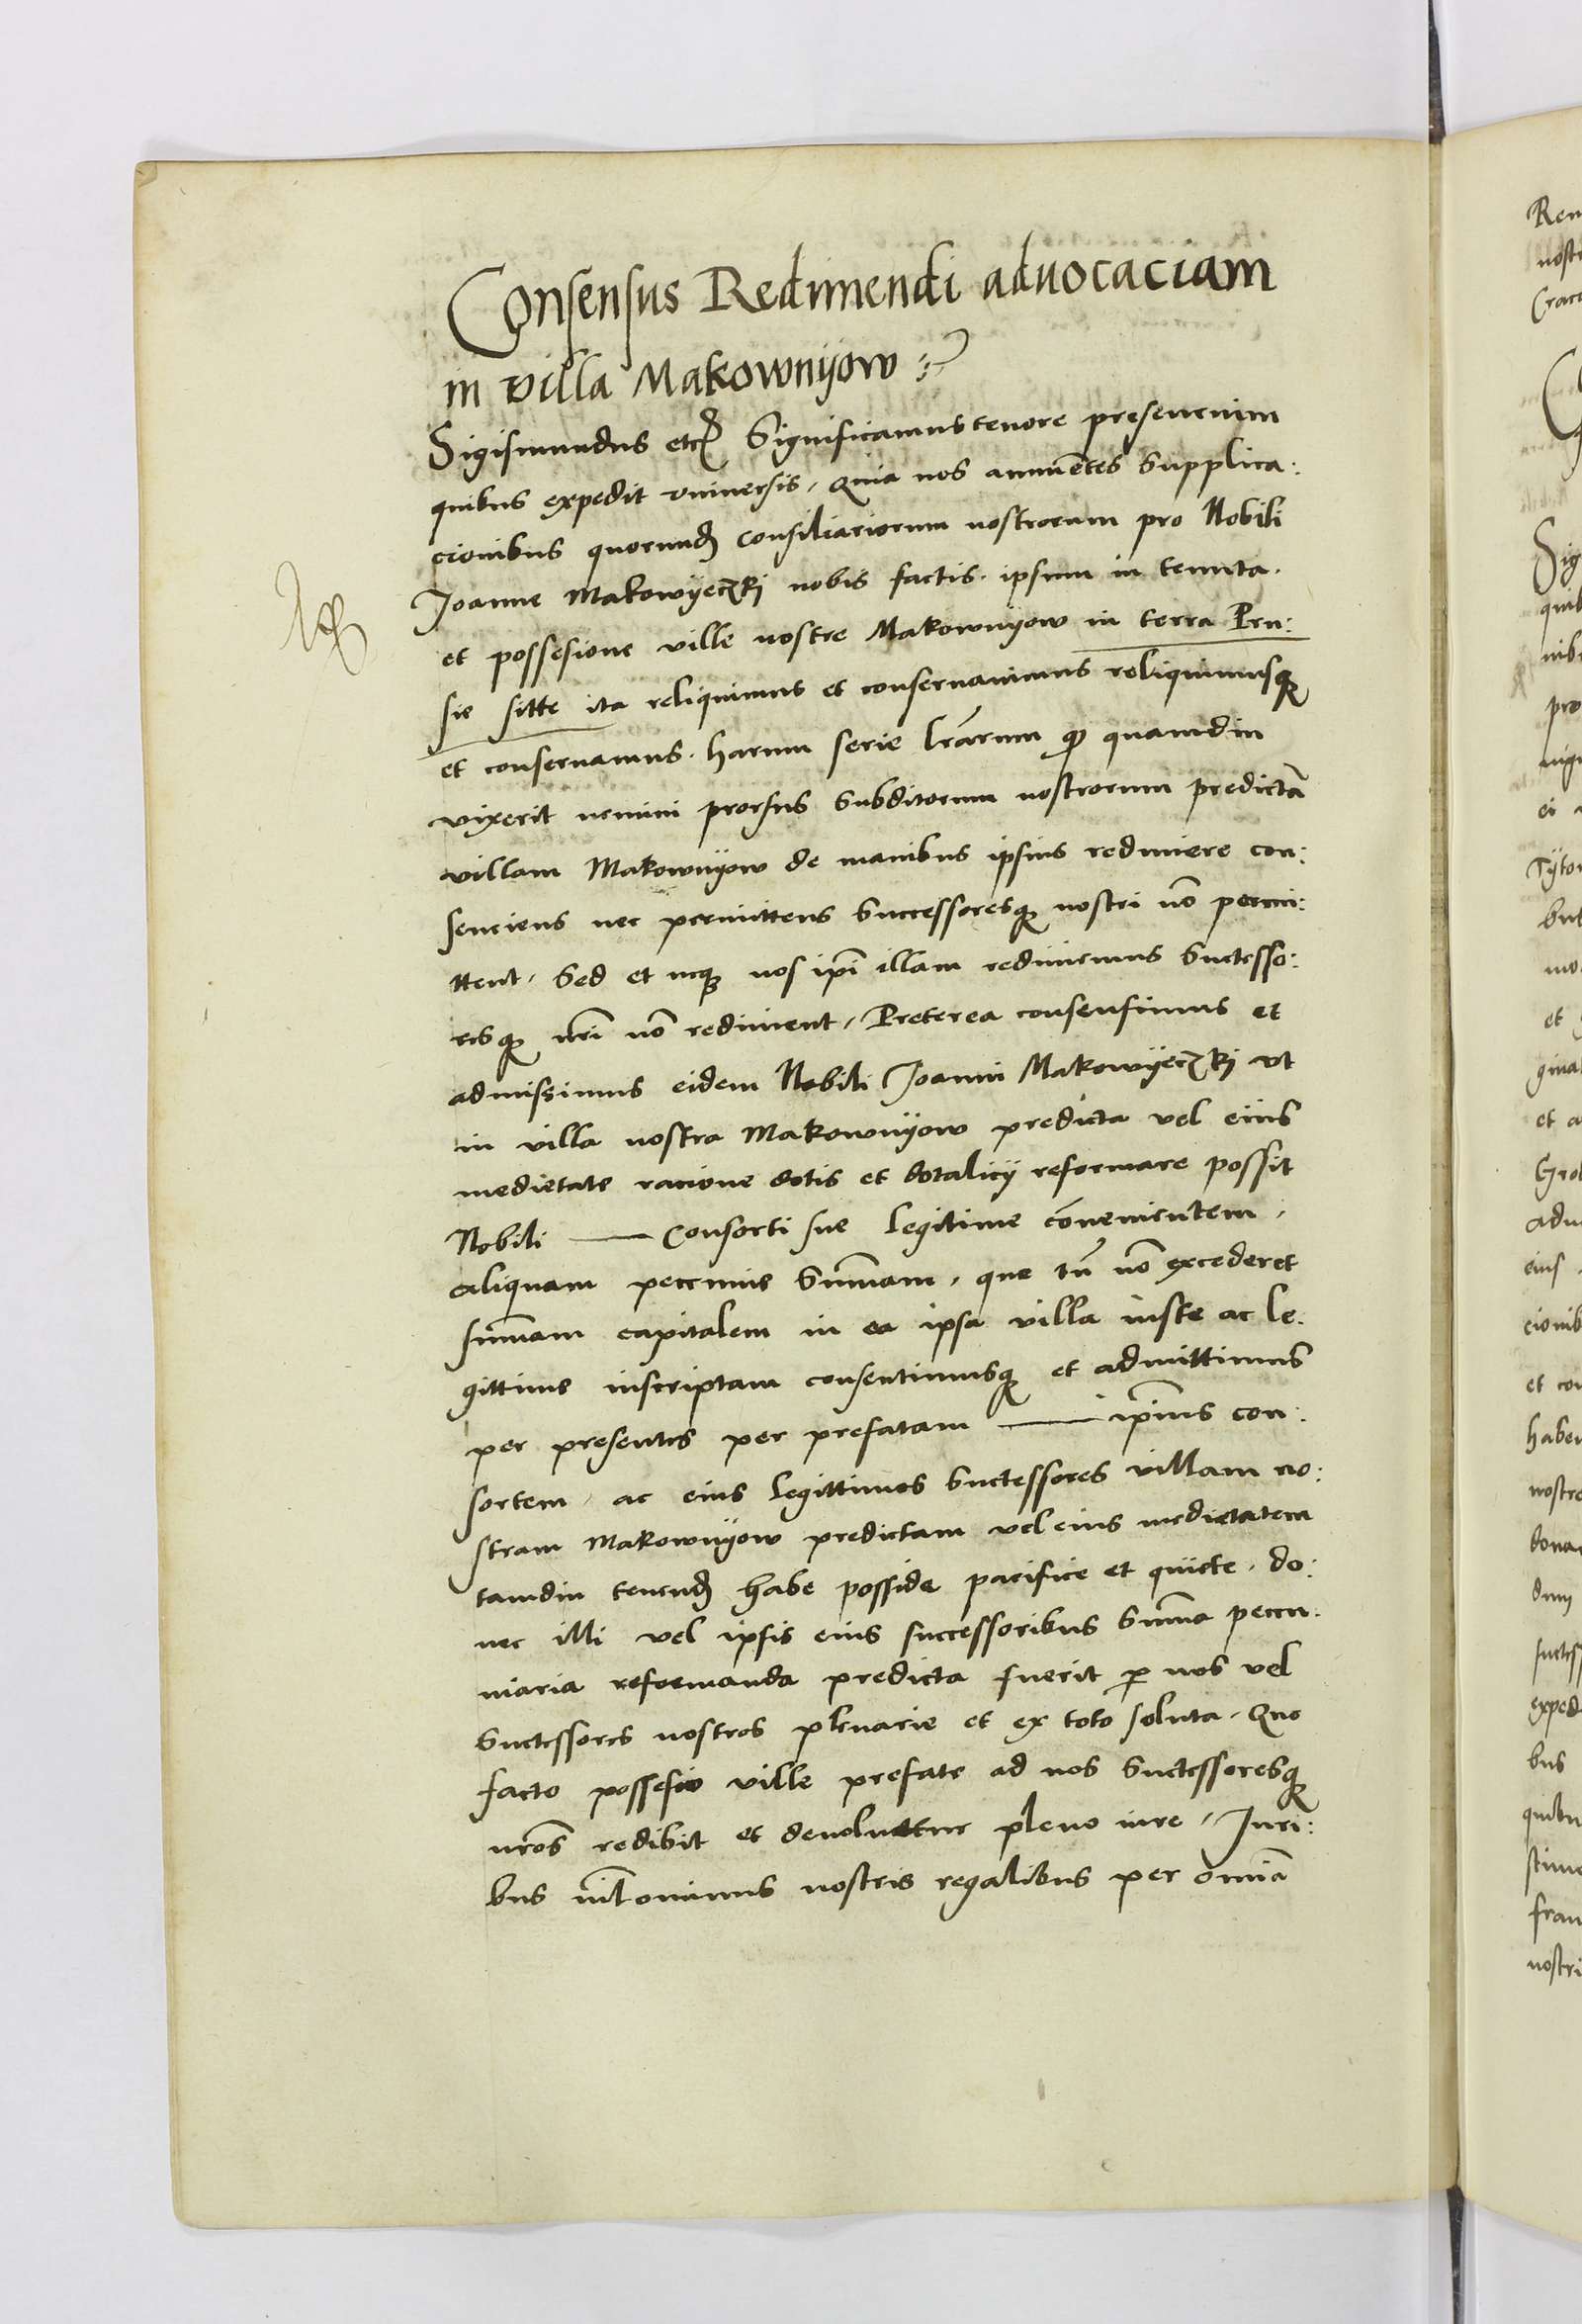 Consensus Redimendi advocaciam
in villa Makownyow
Sigismundus etc Significamus tenore presencium
quibus expedit vniversis, Quia nos annuētes Supplica:
cionibus quorundꝫ consiliariorum nostrorum pro Nobili
Joanne Makowyeczki nobis factis. ipsum in tenuta.
et possesione ville nostre Makownyow in terra Pru:
sie sitte ita reliquimus et conservavimus reliquimusqꝫ
et conservamus. harum serie lrārum ꝙ quamdiu
vixerit nemini prorsus Subditorum nostrorum predictā
villam Makownyow de manibus ipsius redimere con:
senciens nec permittens Successoresqꝫ nostri nō permi:
ttent. Sed et neqꝫ nos ipī illam redimemus Successo:
resqꝫ nrī nō rediment, Preterea consensimus et
admissimus eidem Nobili Joanni Makowyeczki vt
in villa nostra Makownyow predicta vel eius
medietate racione dotis et dotalicy reformare possit
Nobili —— Consorti sue legitime cōvenientem,
aliquam peccunie Sum̄am, que tn̄ nō excederet
sum̄am capitalem in ea ipsa villa iuste ac le.
gittime inscriptam consentimusqꝫ et admittimus
per presentes per prefatam —— ip̄ius con:
sortem, ac eius legittimos Successores villam no:
stram Makownyow predictam vel eius medietatem
tamdiu tenendꝫ habe posside pacifice et quiete. do:
nec illi vel ipsis eius successoribus Sum̄a peccu:
niaria reformanda predicta fuerit ꝑ nos vel
Successores nostros plenarie et ex toto soluta. Quo
facto possesio ville prefate ad nos Successoresqꝫ
nrōs redibit et devoluetur pleno iure, Juri:
bus nīlominus nostris regalibus per omīa